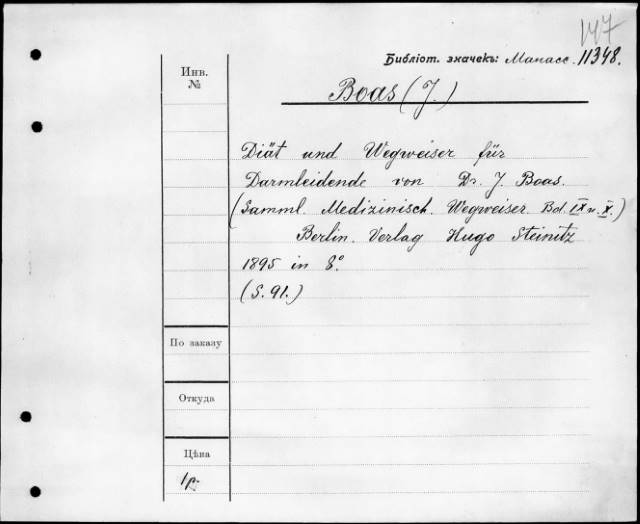 147
Библіот. значекъ: Манасс. 11348.
Инв.
№
Boas (J.)
Diät und Wegweiser für
Darmleidende von Dr. J. Boas.
(Samml. Medizinisch. Wegweiser. Bd. IX u. X.)
Berlin. Verlag Hugo Steinitz
1895 in 8°.
(S. 91.)
По заказу
Откуда
Цѣна
1р.